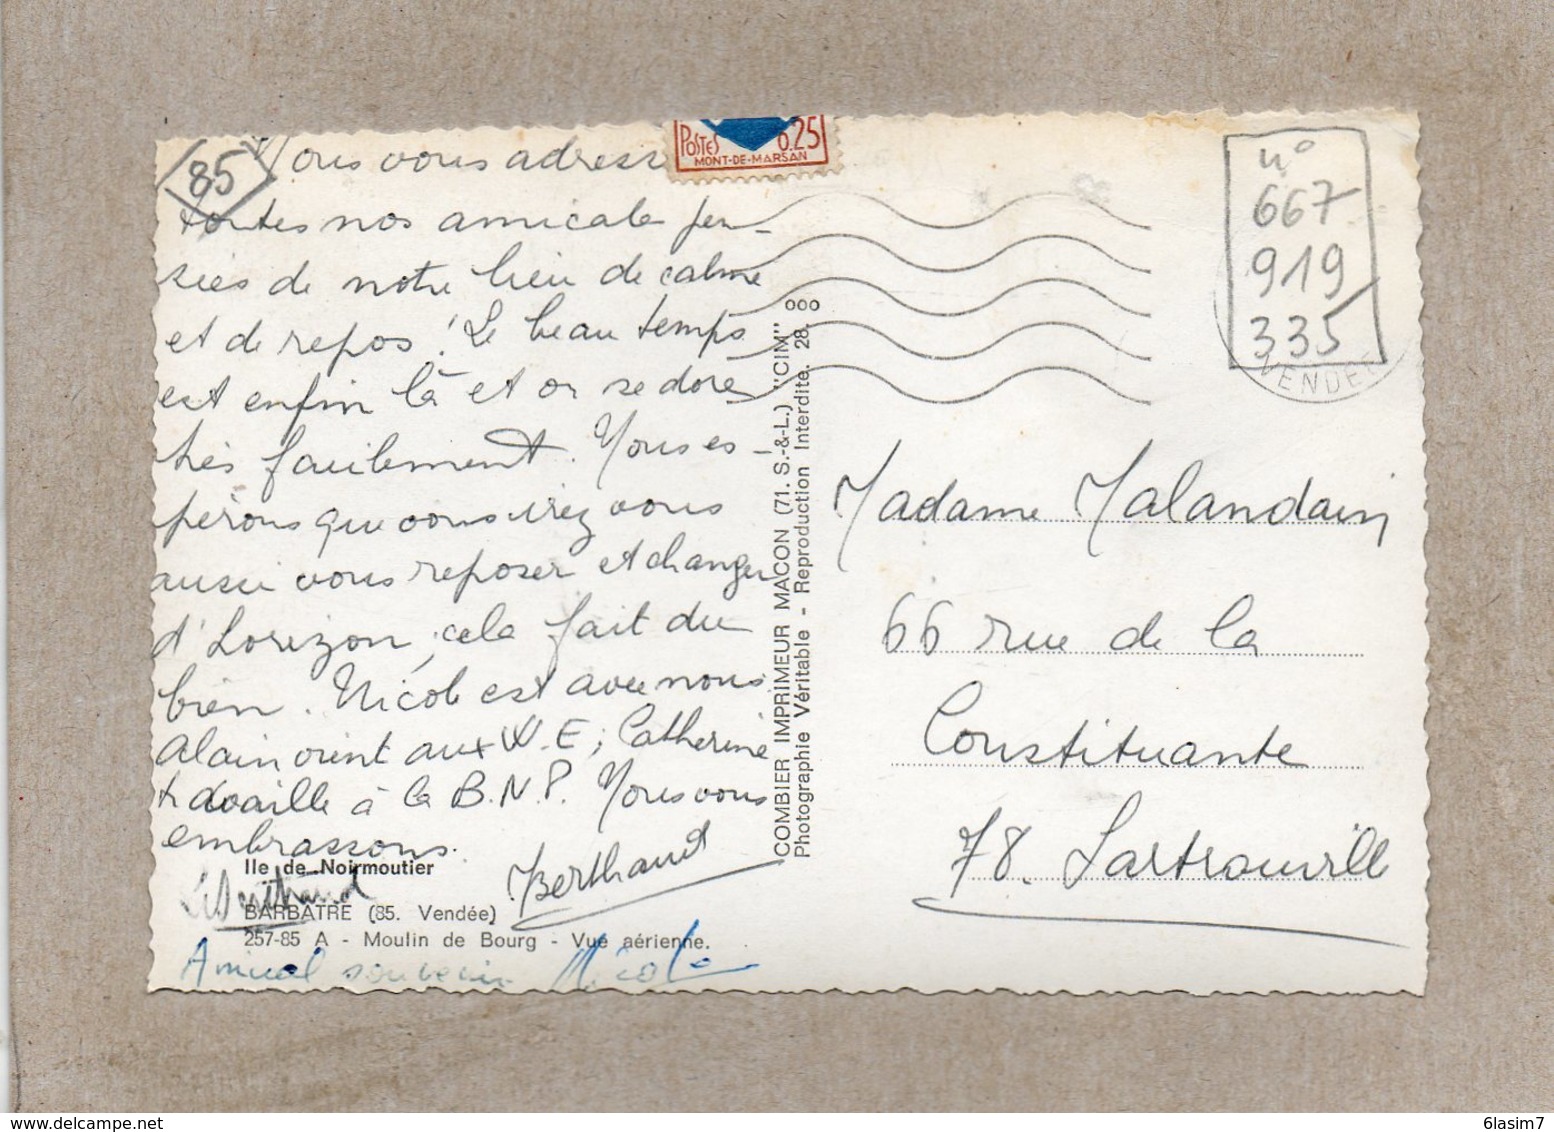 85
Nous vous adress
toutes nos amicales pen-
sées de notre lieu de calme
et de repos ! Le beau temps
est enfin là et on se dore
très facilement. Nous es-
pérons que vous irez vous
aussi vous reposer et changer
d'horizon, cela fait du
bien. Nicole est avec nous
Alain vient aux W.E; Catherine
travaille à la B.N.P. Nous vous
embrassons.
Berthaud
Ile de Noirmoutier
BARBATRE (85. Vendée)
257-85 A - Moulin de Bourg - Vue aérienne.
Amical souvenir Nicole
COMBIER IMPRIMEUR MACON (71. S.-&-L.) "CIM" ooo
Photographie Véritable - Reproduction Interdite. 28.
POSTES 0.25
MONT-DE-MARSAN
n°
667
919
335
VENDEE
Madame Malandain
66 rue de la
Constituante
78. Sartrouville
6lasim7